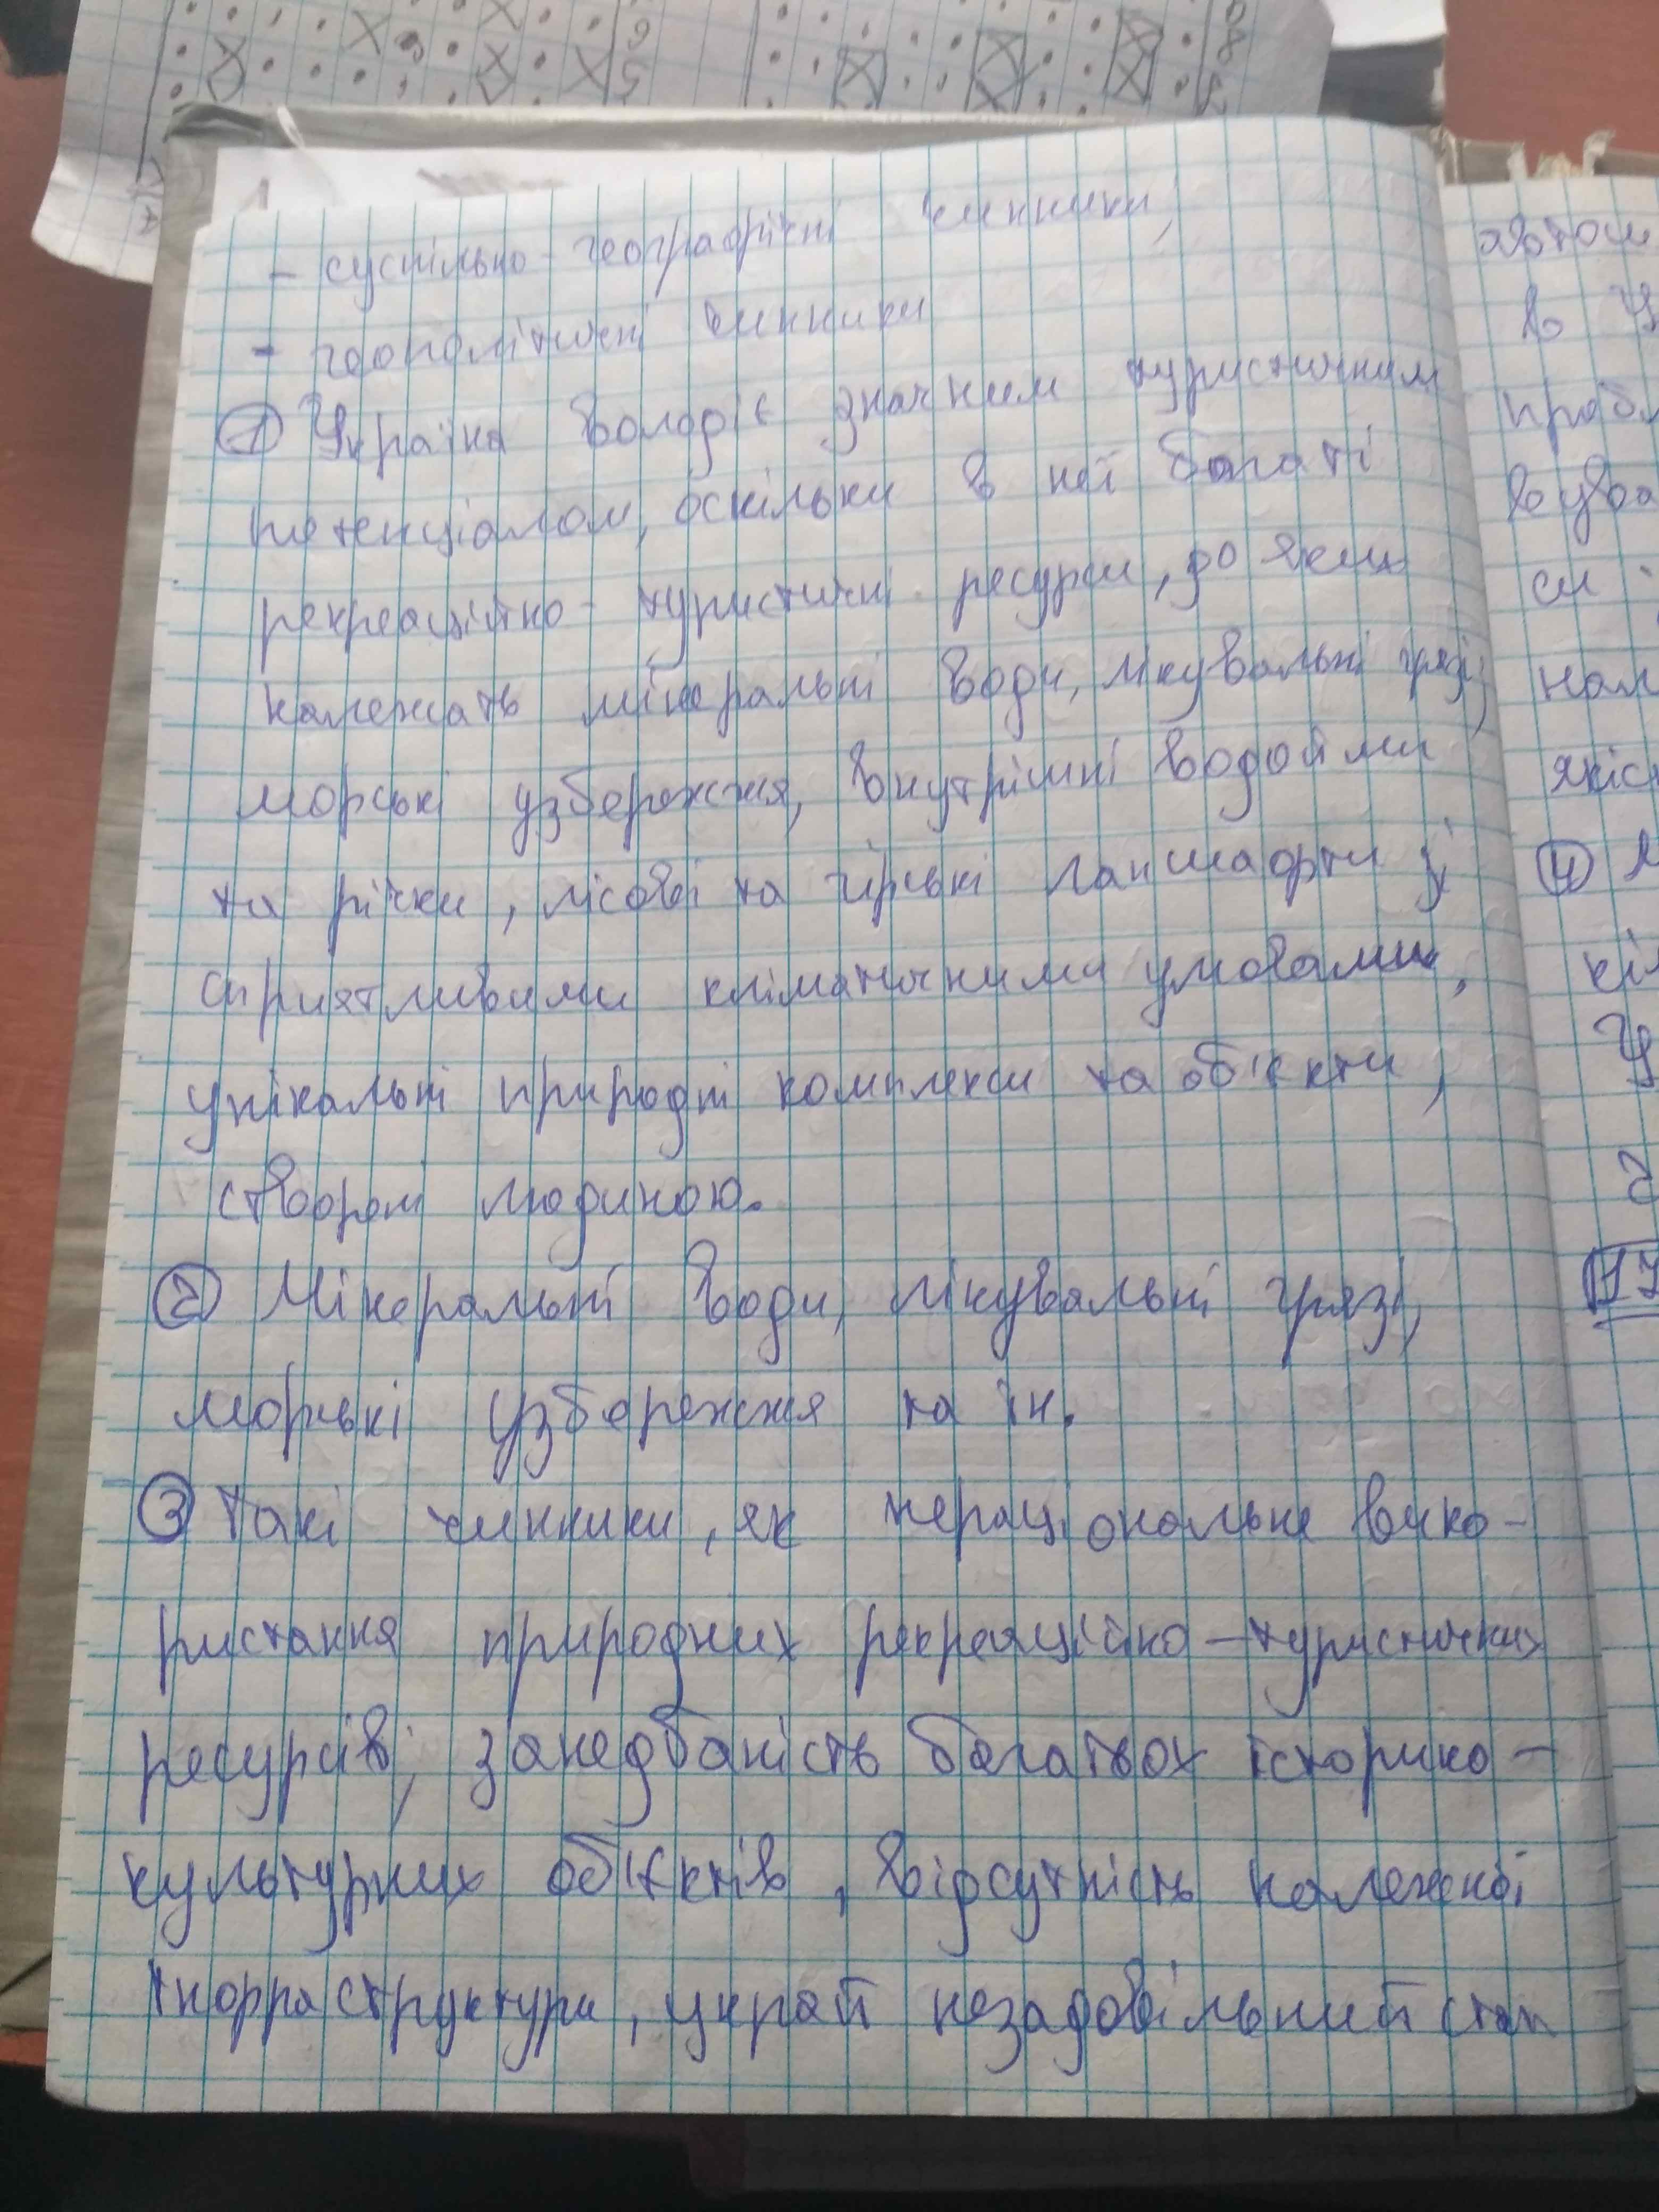 - суспільно-географічні чинники,
- геополітичні чинники
① Україна володіє значним туристичним
потенціалом, оскільки в неї багаті
рекреаційно-туристичні ресурси, до яких
належать мінеральні води, лікувальні грязі,
морські узбережжя, внутрішні водойми
та річки, лісові та гірські ланшафти зі
сприятливими кліматичними умовами,
унікальні природні комплекси та об'єкти,
створені людиною.
② Мінеральні води, лікувальні грязі,
морські узбережжя та ін.
③ Такі чинники, як нераціональне вико-
ристання природних рекреаційно-туристичних
ресурсів, занедбаність багатьох історико-
культурних об'єктів, відсутність належної
інфраструктури, украй незадовільний стан
в У
проб
нал
якіс
④
17